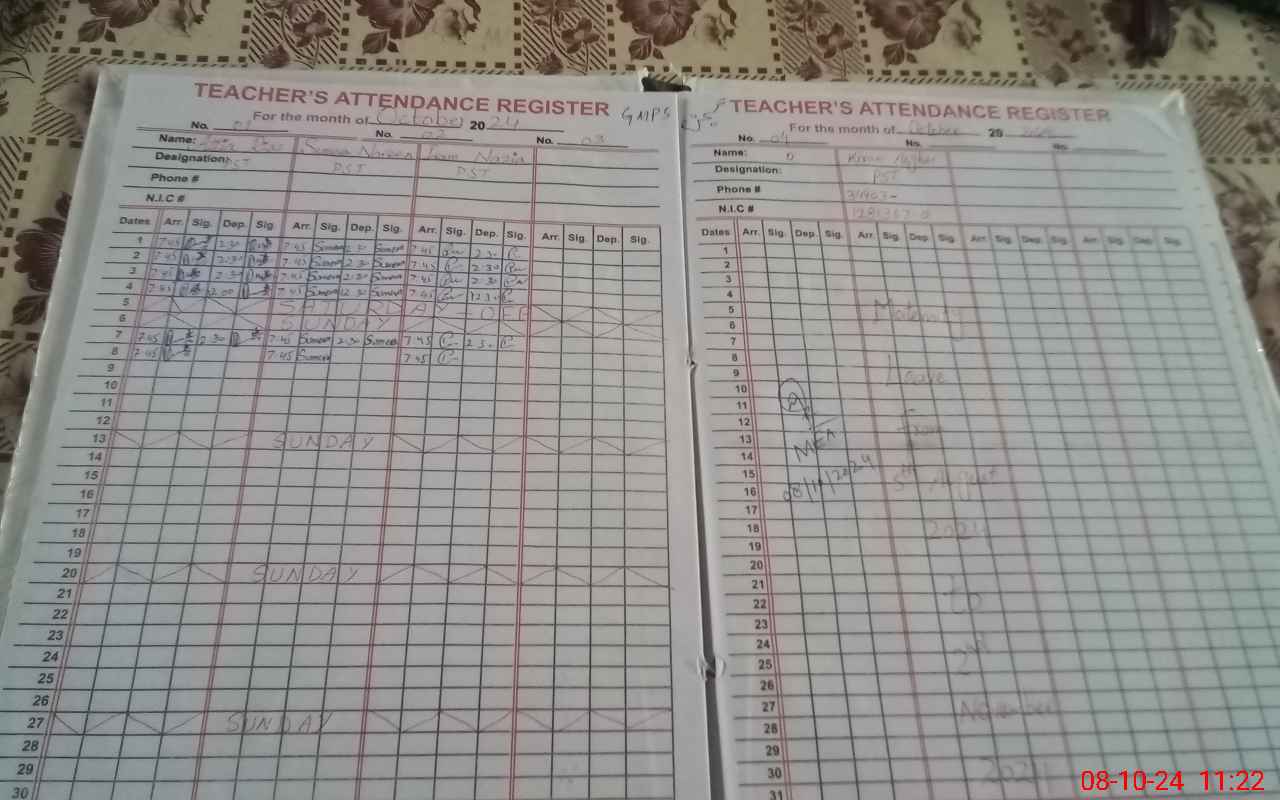 TEACHER'S ATTENDANCE REGISTER GMPS
For the month of October 2024
No. 01 No. 02 No. 03
Name: Sumera Naureen Iram Nazia
Designation: PST PST PST
Phone #
N.I.C #
Dates Arr. Sig. Dep. Sig. Arr. Sig. Dep. Sig. Arr. Sig. Dep. Sig. Arr. Sig. Dep. Sig.
1 7:45 2:30 7:45 Sumera 2:30 Sumera 7:45 2:30
2 7:45 2:30 7:45 Sumera 2:30 Sumera 7:45 2:30
3 7:45 2:30 7:45 Sumera 2:30 Sumera 7:45 2:30
4 7:45 12:00 7:45 Sumera 12:30 Sumera 7:45 12:30
5 SATURDAY - OFF
6 SUNDAY
7 7:45 2:30 7:45 Sumera 2:30 Sumera 7:45 2:30
8 7:45 7:45 Sumera 7:45
9
10
11
12
13 SUNDAY
14
15
16
17
18
19
20 SUNDAY
21
22
23
24
25
26
27 SUNDAY
28
29
30
TEACHER'S ATTENDANCE REGISTER
For the month of October 20
No. 04 No. No.
Name: Kiran
Designation: PST
Phone #
N.I.C #
Dates Arr. Sig. Dep. Sig. Arr. Sig. Dep. Sig. Arr. Sig. Dep. Sig. Arr. Sig. Dep. Sig.
1
2
3
4
5 Maternity
6
7
8
9 Leave
10
11
12 from
13 MEA
14
15 5th August
16 08/10/2024
17
18 2024
19
20
21
22 to
23
24
25 2nd
26
27 November
28
29
30 2024
31
08-10-24 11:22